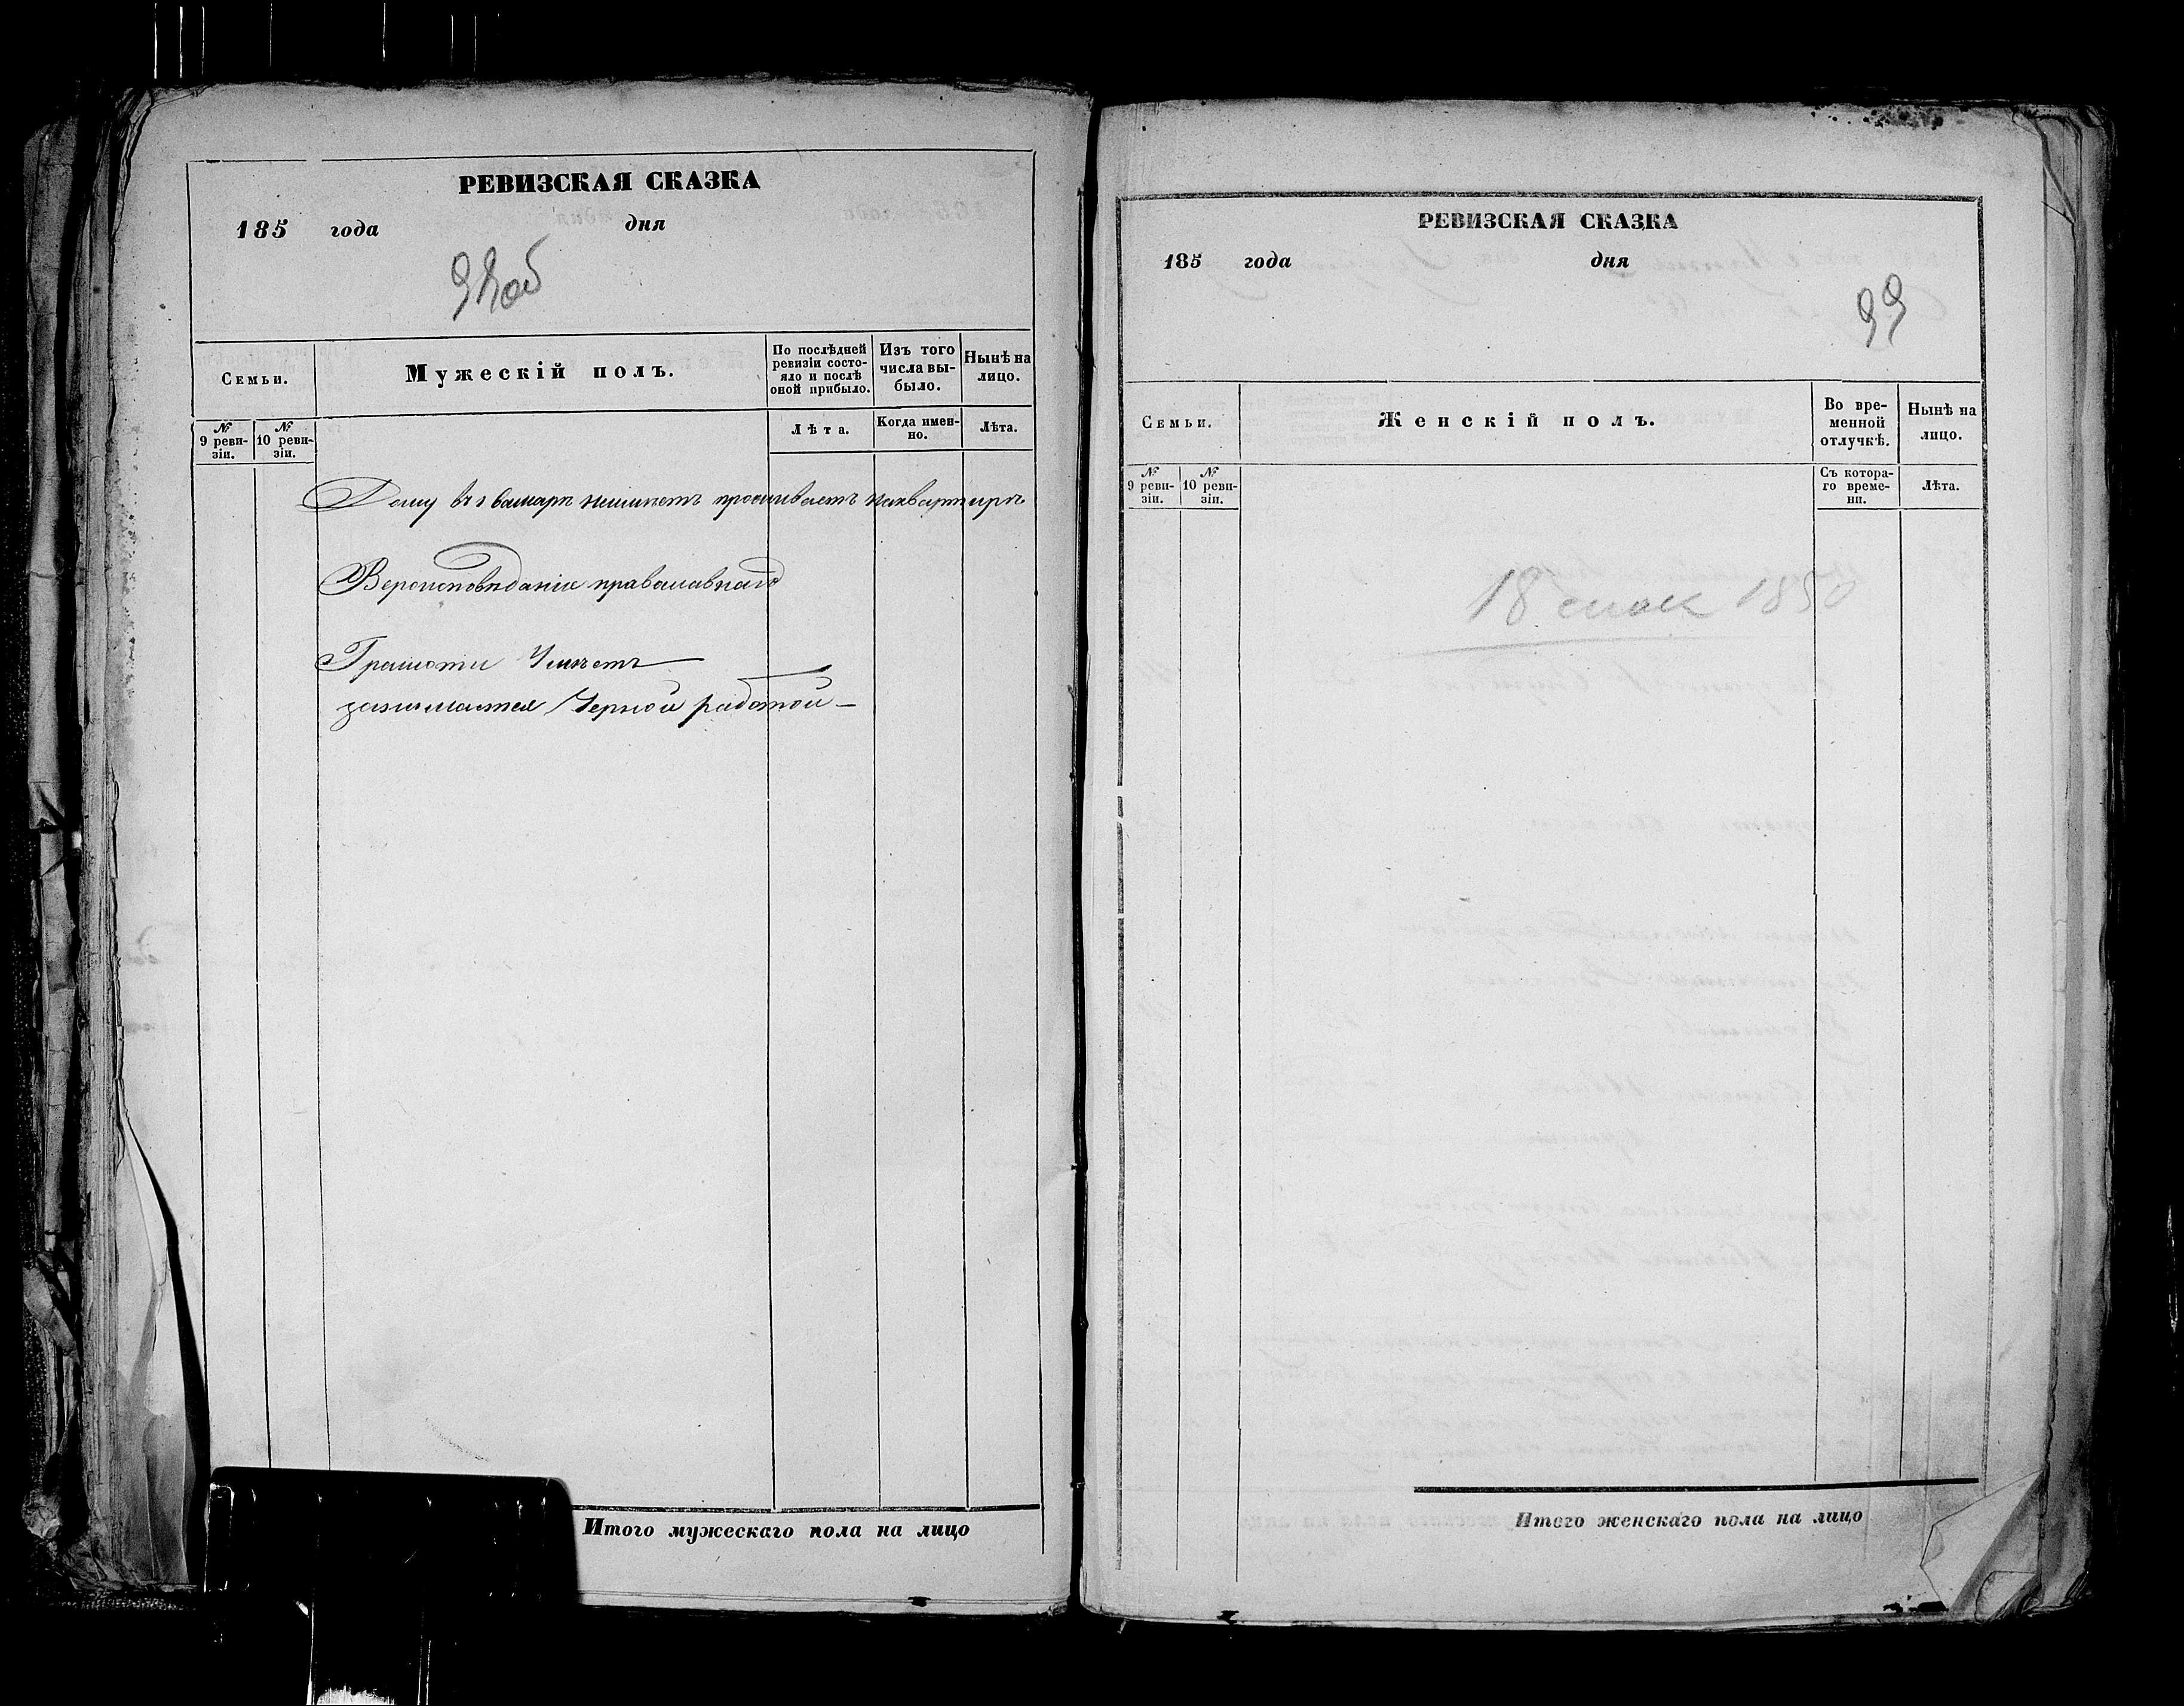 РЕВИЗСКАЯ СКАЗКА
185 года дня
98об
Семьи.
Мужескій полъ.
По послѣдней ревизіи состояло и послѣ оной прибыло.
Изъ того числа выбыло.
Нынѣ на лицо.
№ 9 ревизіи.
№ 10 ревизіи.
Лѣта.
Когда именно.
Лѣта.
Дому въ г Самарѣ неимѣетъ проживаетъ наквартирѣ
Вероисповѣданія православнаго
Грамоти Умѣетъ
занимается Черной работой
Итого мужескаго пола на лицо
РЕВИЗСКАЯ СКАЗКА
185 года дня
99
Семьи.
Женскій полъ.
Во временной отлучкѣ.
Нынѣ на лицо.
№ 9 ревизіи.
№ 10 ревизіи.
Съ котораго времени.
Лѣта.
18 1850
Итого женскаго пола на лицо